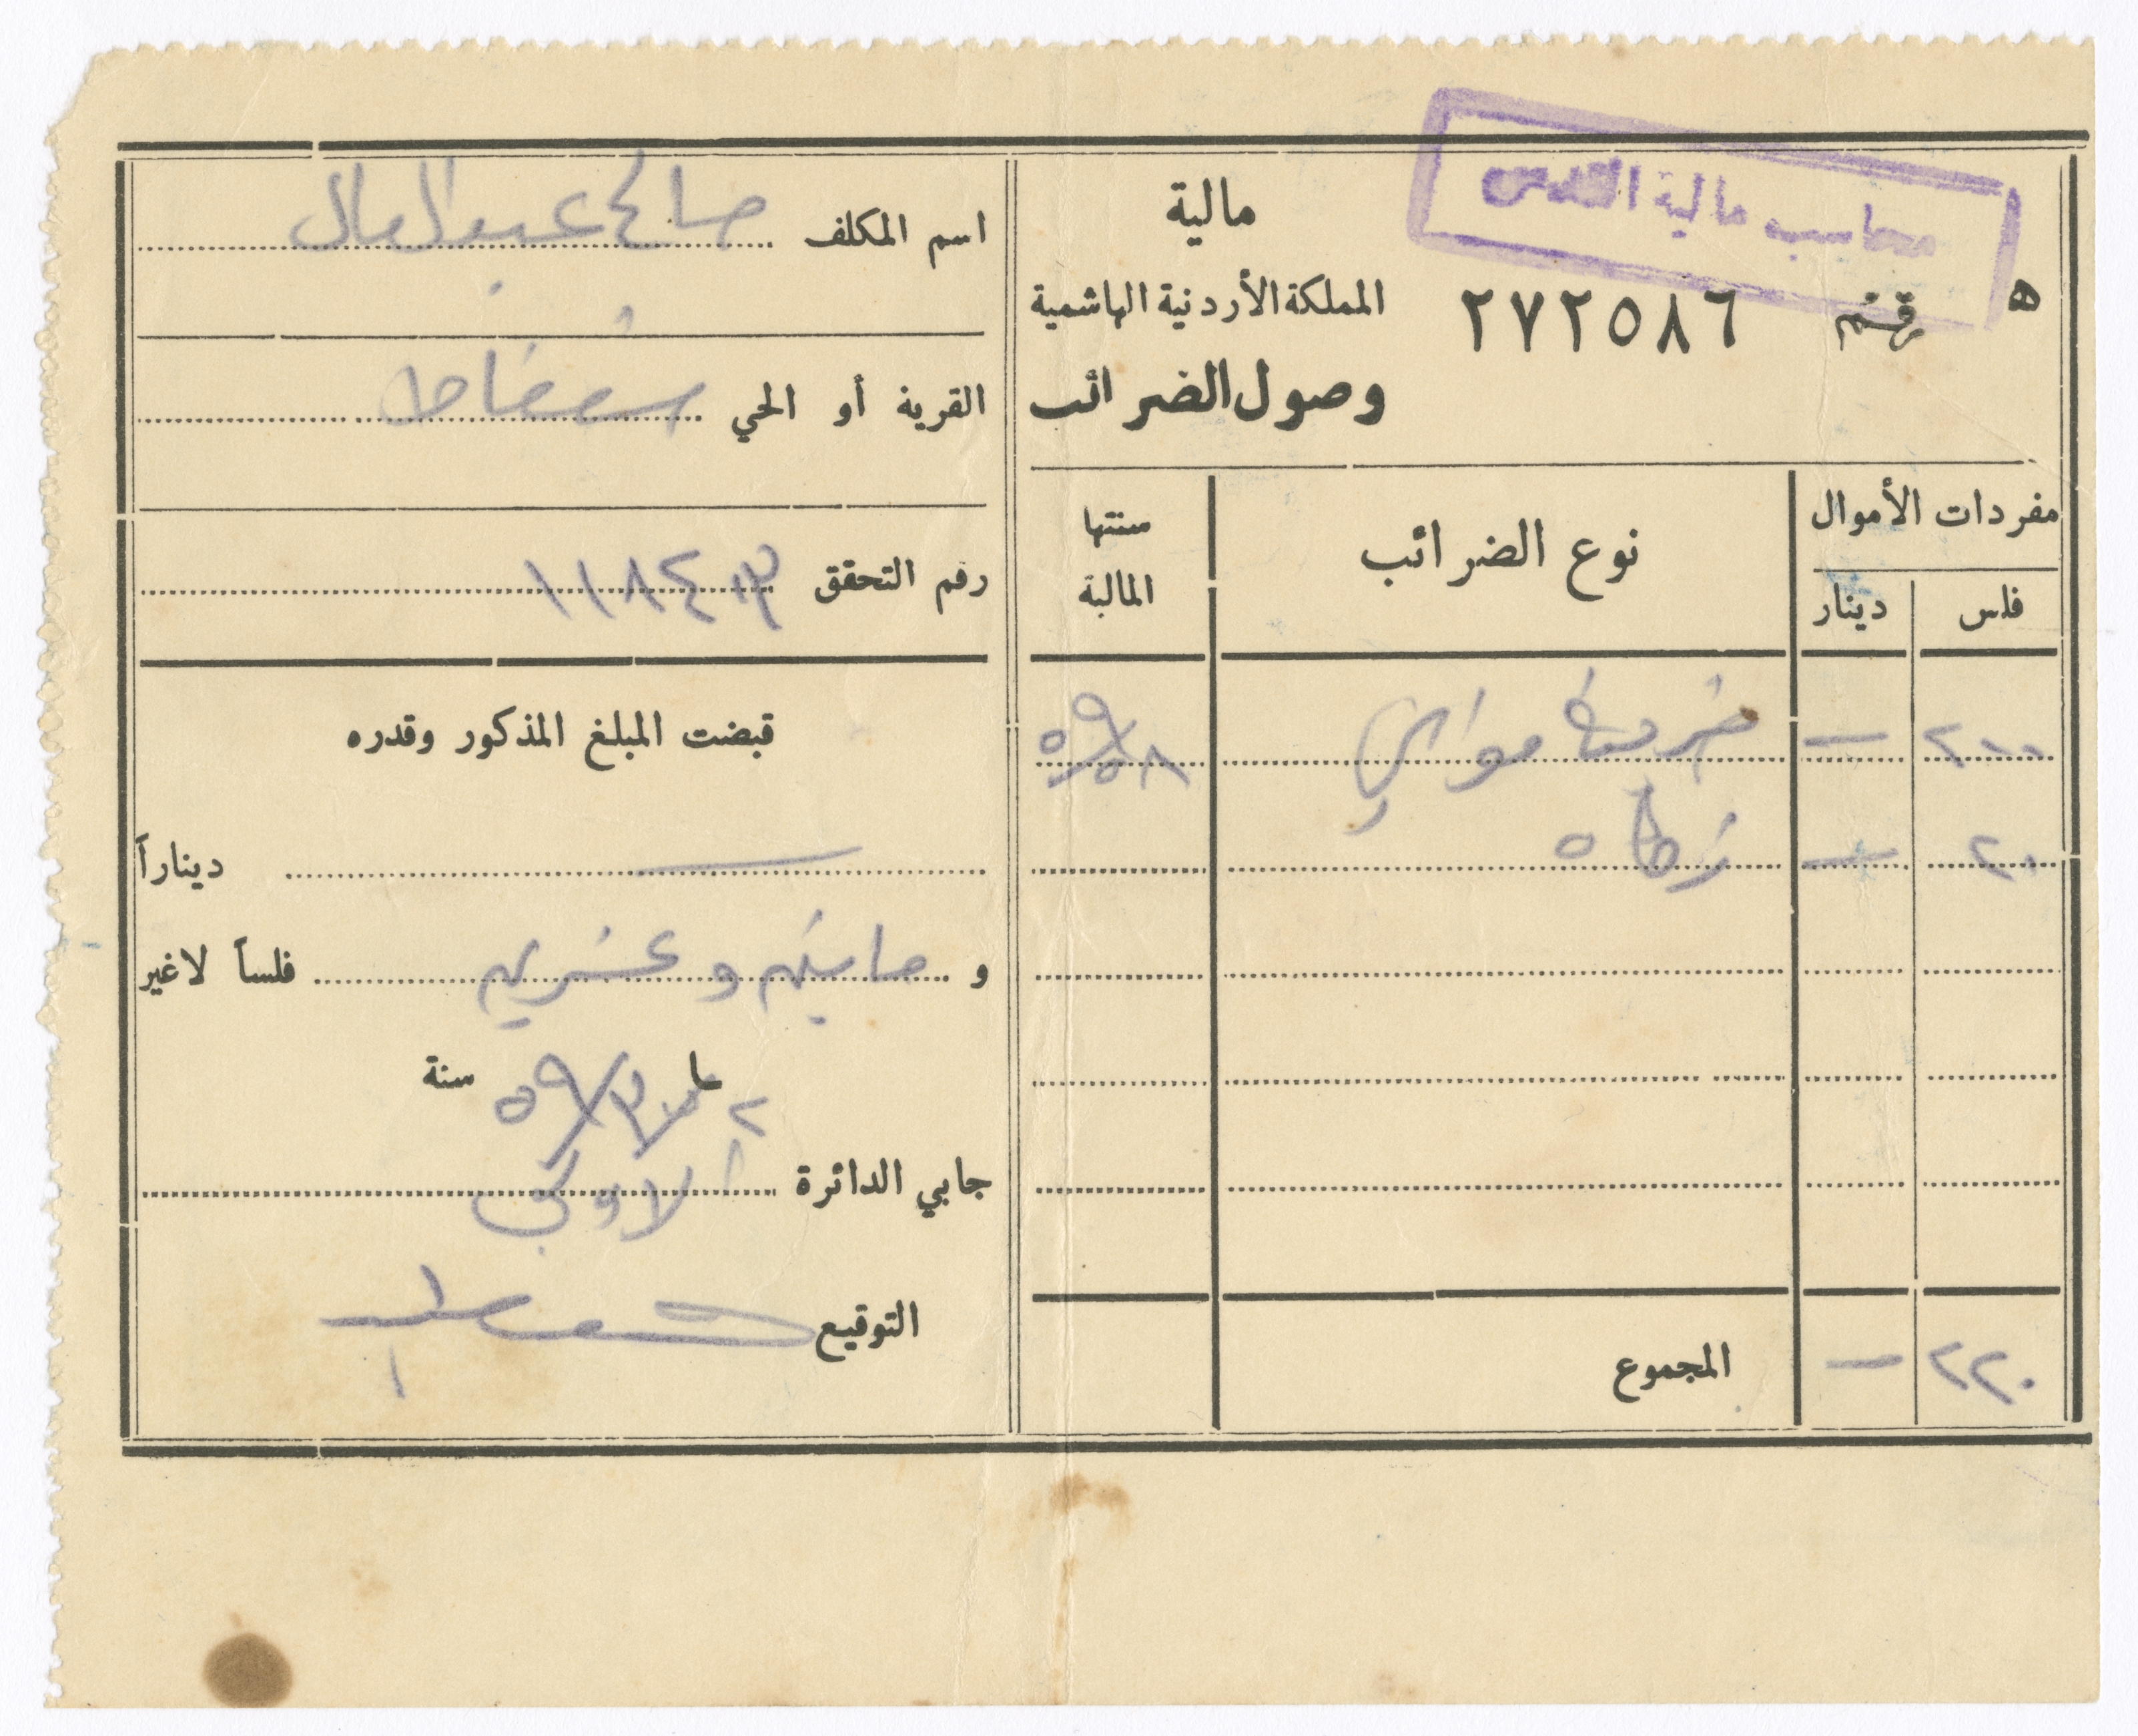 محاسب مالية القدس
مالية
المملكة الأردنية الهاشمية
٥ رقم ٢٧٢٥٨٦
وصول الضرائب
مفردات الأموال
نوع الضرائب
سنتها المالية
فلس دينار
٢٠٠ — ضريبة مواشي ٥٩/٥٨
٢٠ — زكاة
٢٢٠ — المجموع
اسم المكلف صالح عبد العال
القرية أو الحي شعفاط
رقم التحقق
قبضت المبلغ المذكور وقدره
— ديناراً
و مايتين وعشرين فلساً لاغير
سنة
جابي الدائرة
التوقيع